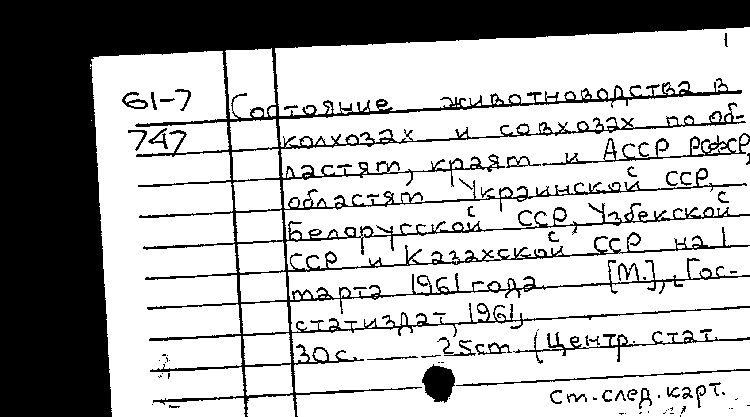 1
61-7 Состояние животноводства в
747 колхозах и совхозах по об-
ластям, краям и АССР РСФСР,
областям Украинской ССР,
Белорусской ССР, Узбекской
ССР и Казахской ССР на 1
марта 1961 года. [М.], Гос-
статиздат, 1961,
30 с. 25 см. (Центр. стат.
См. след. карт.